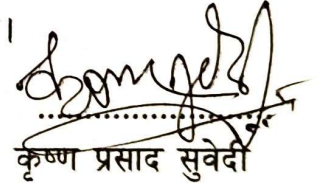 ।
कृष्ण प्रसाद सुवेदी